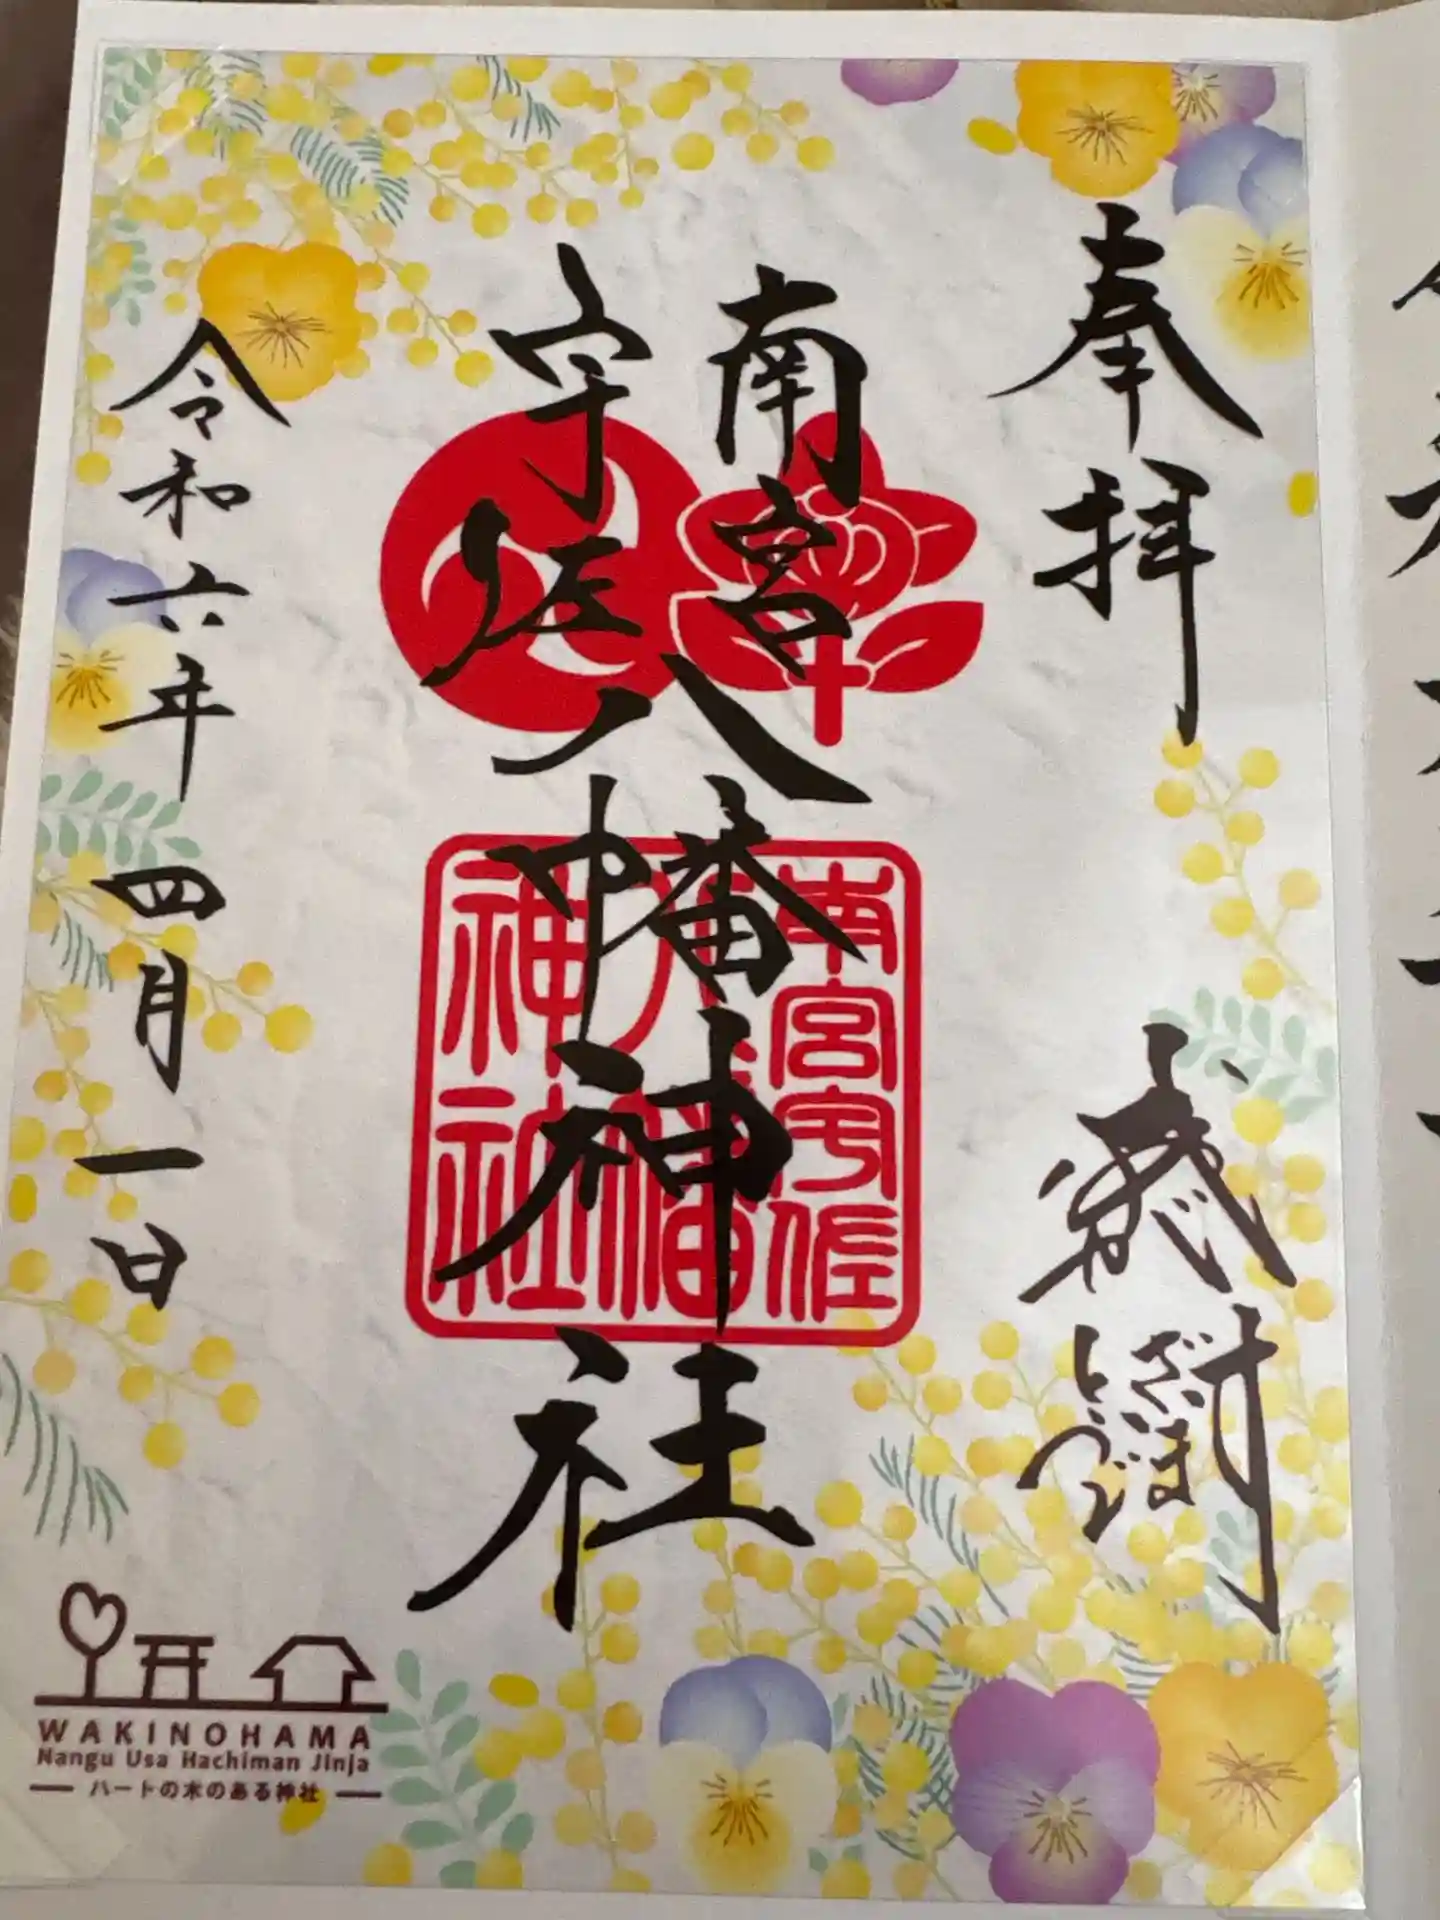 奉拝
感謝
南宮
宇佐
八幡神社
南宮宇佐
八幡
神社
令和六年四月一日
WAKINOHAMA
Nangu Usa Hachiman Jinja
ハートの木のある神社